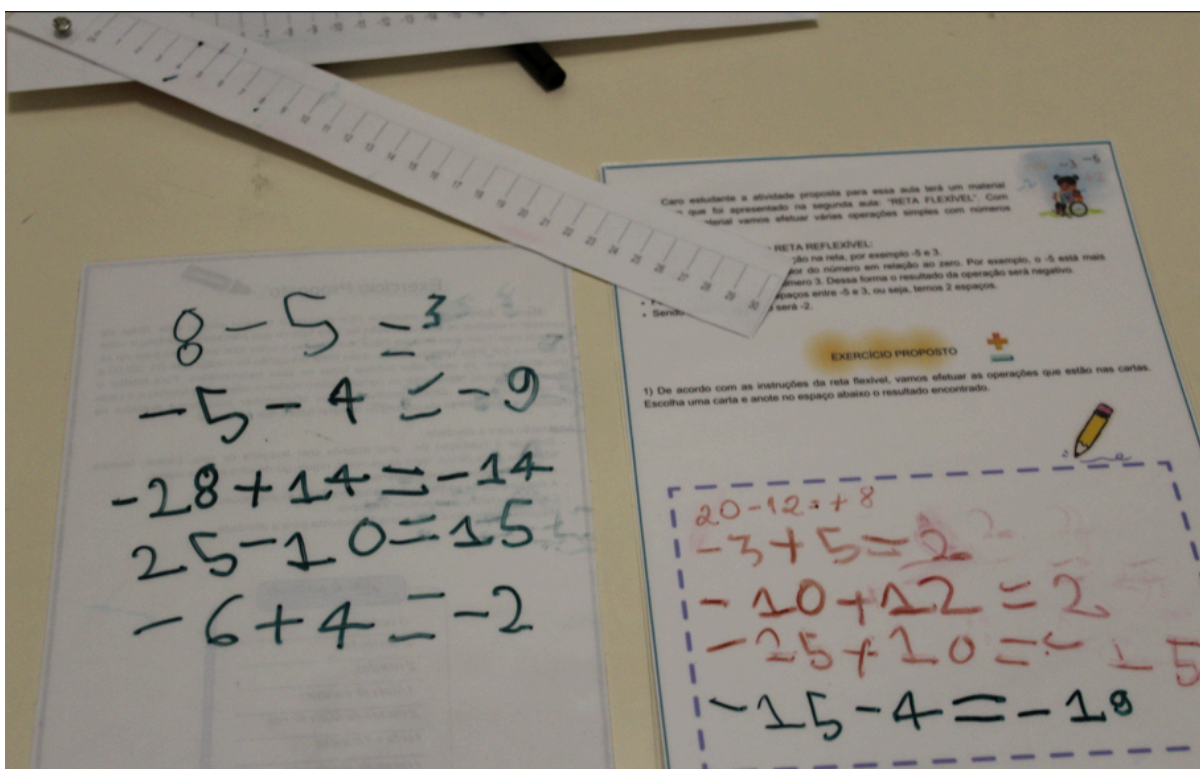 8 - 5 = 3
-5 - 4 = -9
-28 + 14 = -14
25 - 10 = 15
-6 + 4 = -2
9 10 11 12 13 14 15 16 17 18 19 20 21 22 23 24 25 26 27 28 29 30
-3 -5
Caro estudante a atividade proposta para essa aula terá um material
que foi apresentado na segunda aula: "RETA FLEXÍVEL". Com
vamos efetuar várias operações simples com números
RETA REFLEXÍVEL:
na reta, por exemplo -5 e 3.
do número em relação ao zero. Por exemplo, o -5 está mais
3. Dessa forma o resultado da operação será negativo.
espaços entre -5 e 3, ou seja, temos 2 espaços.
será -2.
EXERCÍCIO PROPOSTO
1) De acordo com as instruções da reta flexível, vamos efetuar as operações que estão nas cartas.
Escolha uma carta e anote no espaço abaixo o resultado encontrado.
20 - 12 = + 8
-3 + 5 = 2
-10 + 12 = 2
-25 + 10 = - 15
-15 - 4 = -19